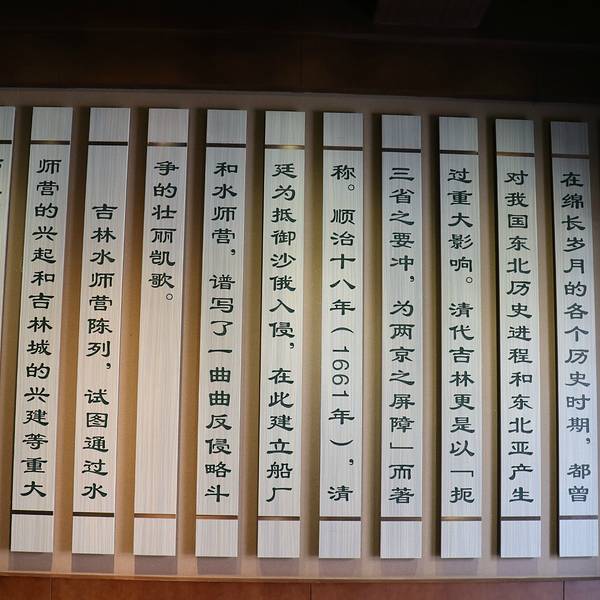 在绵长岁月的各个历史时期，都曾
对我国东北历史进程和东北亚产生
过重大影响。清代吉林更是以「扼
三省之要冲，为两京之屏障」而著
称。顺治十八年（1661年），清
廷为抵御沙俄入侵，在此建立船厂
和水师营，谱写了一曲曲反侵略斗
争的壮丽凯歌。
吉林水师营陈列，试图通过水
师营的兴起和吉林城的兴建等重大